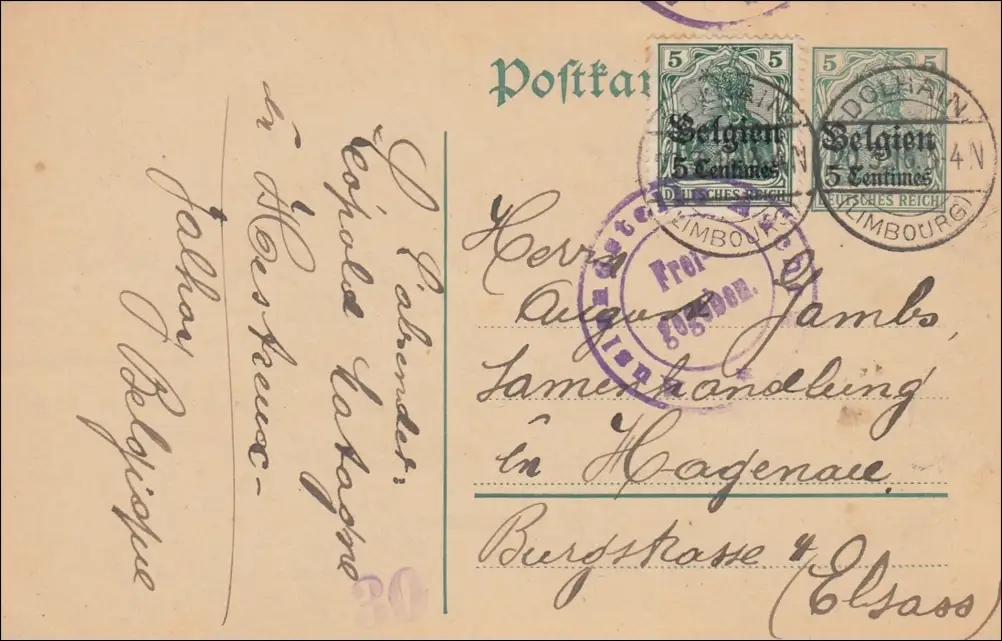 Postkar
5 5
Belgien
5 Centimes
DEUTSCHES REICH
5 5
Belgien
5 Centimes
DEUTSCHES REICH
DOLHAIN
(LIMBOURG)
DOLHAIN
4N
(LIMBOURG)
Frei-
gegeben.
Herrn
August Jambs,
Samenhandlung
in Hagenau.
Burgstrasse 4
(Elsass)
Léopold Latagne
in Hestreux-
Jalhay
Belgique
30